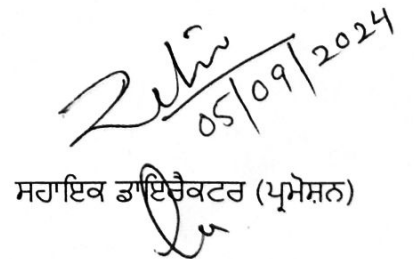 05/09/2024
ਸਹਾਇਕ ਡਾਇਰੈਕਟਰ (ਪ੍ਰਮੋਸ਼ਨ)